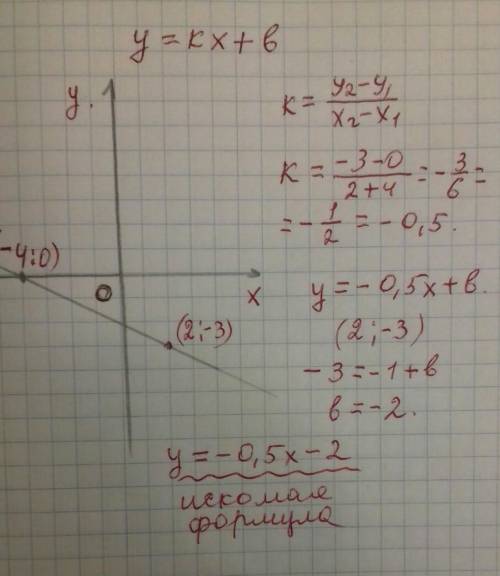 y = kx + b
y
k = (y₂ - y₁)/(x₂ - x₁)
k = (-3-0)/(2+4) = -3/6 =
= -1/2 = -0,5.
-4;0)
0
x
y = -0,5x + b.
(2;-3)
(2;-3)
-3 = -1 + b
b = -2.
y = -0,5x - 2
искомая
формула